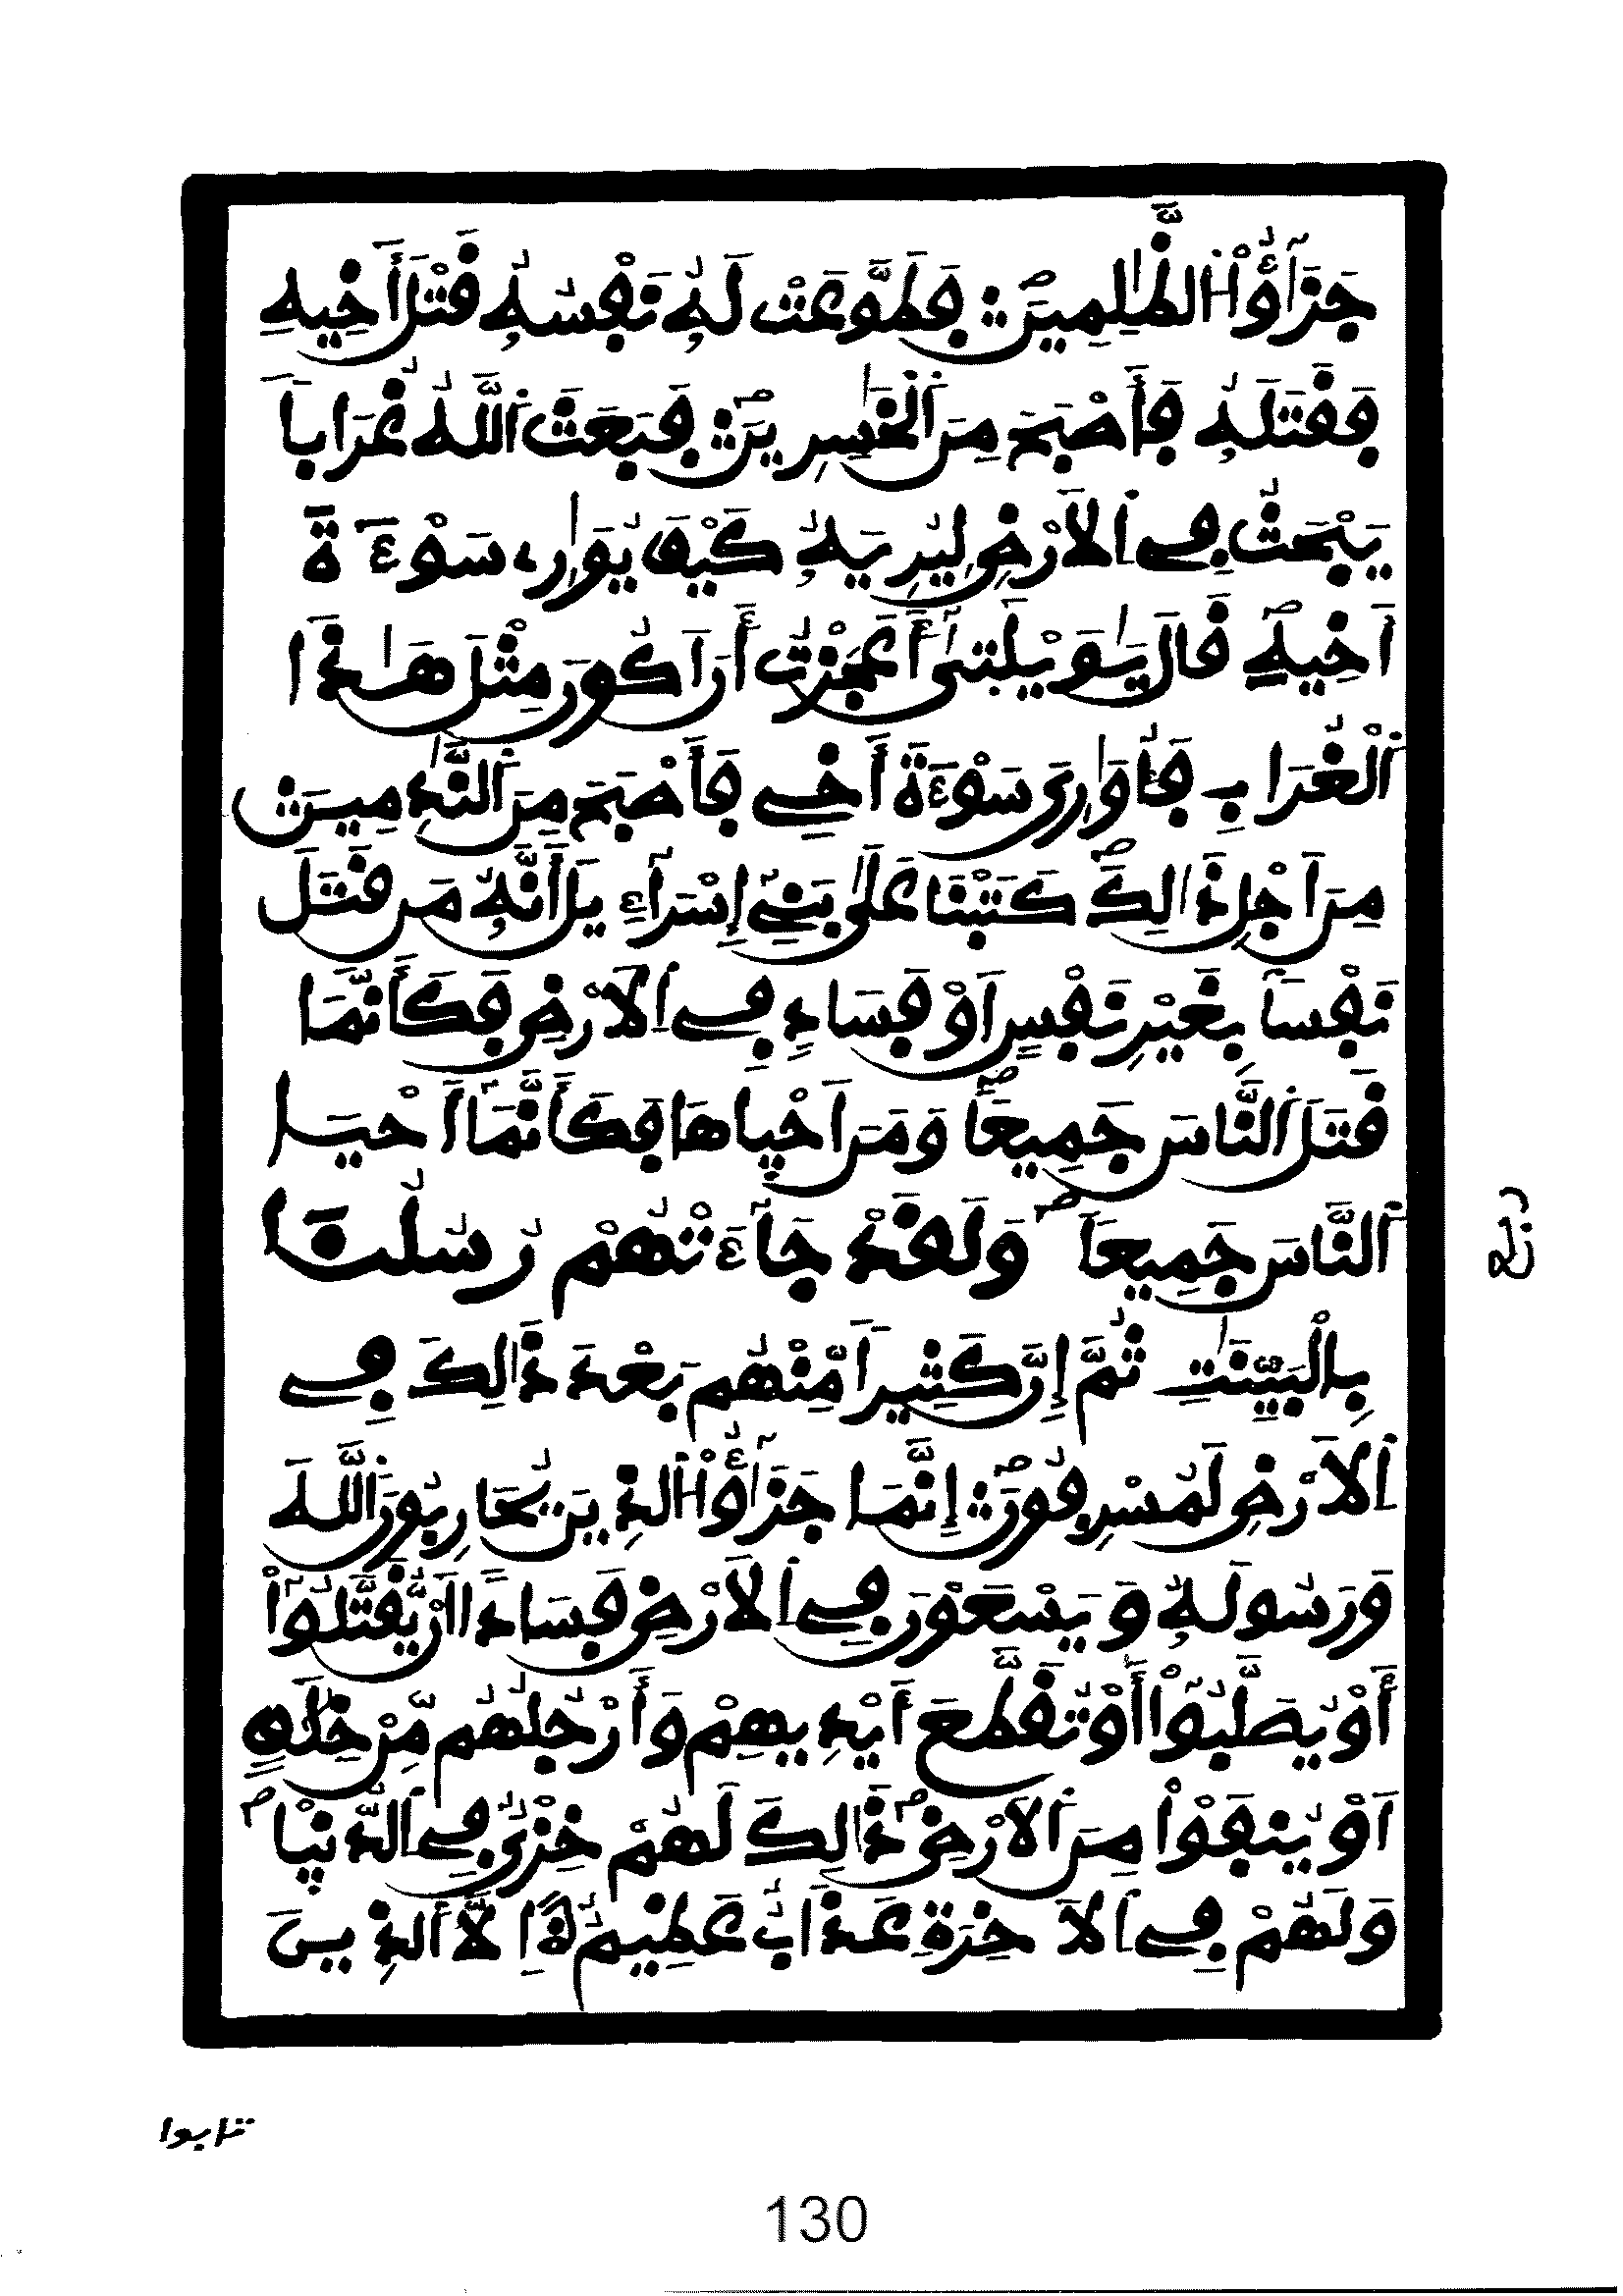 جَزَٰٓؤُا۟ اُ۬لظَّٰلِمِينَ فَطَوَّعَتْ لَهُۥ نَفْسُهُۥ قَتْلَ أَخِيهِ
فَقَتَلَهُۥ فَأَصْبَحَ مِنَ اَ۬لْخَٰسِرِينَ فَبَعَثَ اَ۬للَّهُ غُرَاباً
يَبْحَثُ فِے اِ۬لَارْضِ لِيُرِيَهُۥ كَيْفَ يُوَٰرِے سَوْءَةَ
أَخِيهِ قَالَ يَٰوَيْلَتَىٰٓ أَعَجَزْتُ أَنَ اَكُونَ مِثْلَ هَٰذَا
اَ۬لْغُرَابِ فَأُوَٰرِيَ سَوْءَةَ أَخِے فَأَصْبَحَ مِنَ اَ۬لنَّٰدِمِينَ
مِنَ اَجْلِ ذَٰلِكَ كَتَبْنَا عَلَىٰ بَنِےٓ إِسْرَآءِيلَ أَنَّهُۥ مَن قَتَلَ
نَفْساً بِغَيْرِ نَفْسٍ اَوْ فَسَادٍ فِے اِ۬لَارْضِ فَكَأَنَّمَا
قَتَلَ اَ۬لنَّاسَ جَمِيعاً وَمَنَ اَحْياهَا فَكَأَنَّمَآ أَحْيَا
اَ۬لنَّاسَ جَمِيعاً وَلَقَدْ جَآءَتْهُمْ رُسُلُنَا
بِالْبَيِّنَٰتِ ثُمَّ إِنَّ كَثِيراً مِّنْهُم بَعْدَ ذَٰلِكَ فِے
اِ۬لَارْضِ لَمُسْرِفُونَ إِنَّمَا جَزَٰٓؤُا۟ اُ۬لذِينَ يُحَارِبُونَ اَ۬للَّهَ
وَرَسُولَهُۥ وَيَسْعَوْنَ فِے اِ۬لَارْضِ فَسَاداً اَنْ يُّقَتَّلُوٓا۟
أَوْ يُصَلَّبُوٓا۟ أَوْ تُقَطَّعَ أَيْدِيهِمْ وَأَرْجُلُهُم مِّنْ خِلَٰفٍ
اَوْ يُنفَوْا۟ مِنَ اَ۬لَارْضِ ذَٰلِكَ لَهُمْ خِزْيٌ فِے اِ۬لدُّنْيا
وَلَهُمْ فِے اِ۬لَاخِرَةِ عَذَابٌ عَظِيمٌ إِلَّا اَ۬لذِينَ
تابوا
130